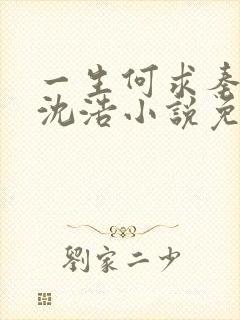 一生何求秦
沈浩小説免
劉家二少